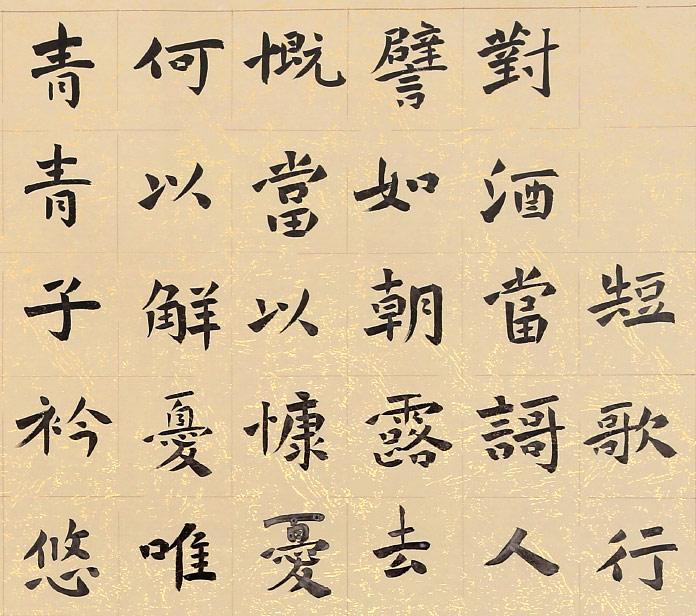 短歌行
對酒當謌人
譬如朝露去
慨當以慷憂
何以觧憂唯
青青子衿悠